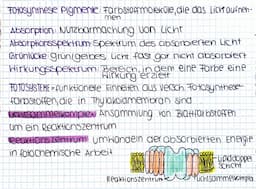 Fotosynthese Pigmente: Farbstoffmoleküle, die das Licht aufneh-
men
Absorption: Nutzbarmachung von Licht
Absorptionsspektrum: Spektrum des absorbierten Licht
Grünlücke: Grün/gelbes Licht fast gar nicht absorbiert
Wirkungsspektrum: Bereich, in dem eine Farbe eine
Wirkung erzielt
FOTOSYSTEME: Funktionelle Einheiten aus versch. Fotosynthese-
farbstoffen, die in Thylakoidmembran sind
Lichtsammelkomplex: Ansammlung von Blattfarbstoffen
um ein Reaktionszentrum
Reaktionszentrum: Umwandeln der absorbierten Energie
in fotochemische Arbeit
Lipiddoppel
Schicht
Reaktionszentrum
Lichtsammelkomplex